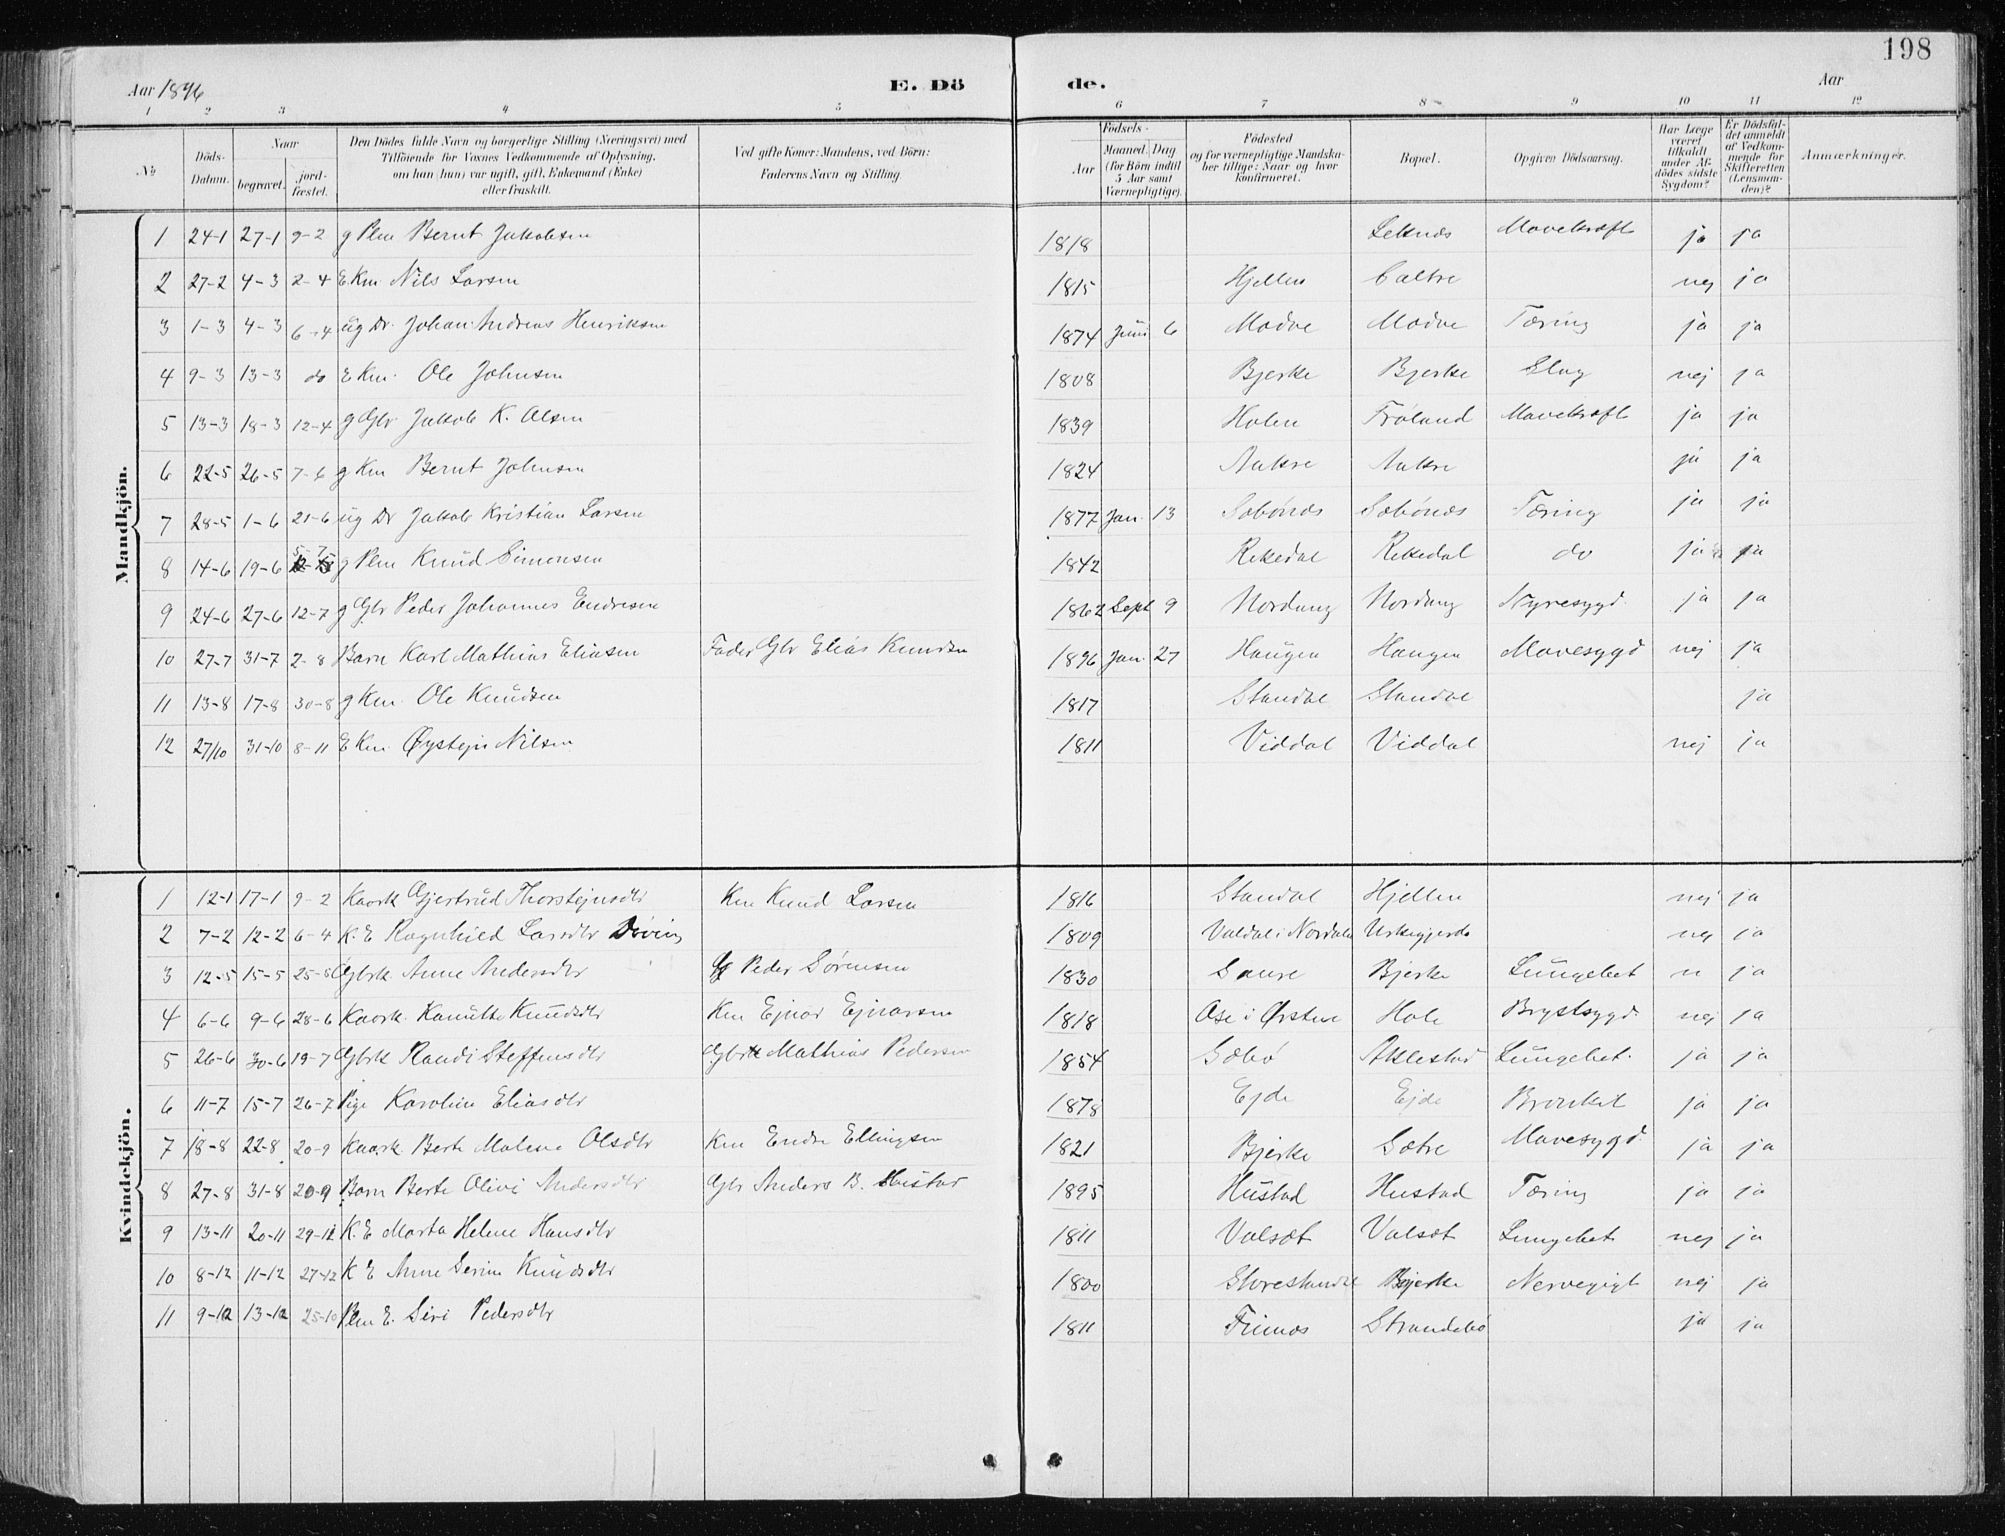 198
Aar 1896 E. Dö de. Aar
1 2 3 4 5 6 7 8 9 10 11 12
№ Döds-Datum. Naar begravet. jord-fæstet. Den Dödes fulde Navn og borgerlige Stilling (Næringsvei) med Tilföiende for Voxnes Vedkommende af Oplysning, om han (hun) var ugift, gift, Enkemand (Enke) eller fraskilt. Ved gifte Koner: Mandens, ved Börn: Faderens Navn og Stilling. Födsels- Aar Maaned. Dag (for Börn indtil 5 Aar samt Værnepligtige). Födested og for værnepligtige Mandskaber tillige: Naar og hvor konfirmeret. Bopæl. Opgiven Dödsaarsag. Har Læge været tilkaldt under Afdödes sidste Sygdom? Er Dödsfaldet anmeldt af Vedkommende for Skifteretten (Lensmanden)? Anmærkninger.
Mandkjön.
1 24-1 27-1 9-2 g Plm Bernt Jakobsen 1818 Leknes Mavekræft ja ja
2 27-2 4-3 2-4 E. Km. Nils Larsen 1815 Hjellen nej ja
3 1-3 4-3 6-4 ug Dr. Johan Andreas Henriksen 1874 Juni 6 Modve Modve Tæring ja ja
4 9-3 13-3 do E Km. Ole Johnsen 1808 Bjerke Bjerke Slag nej ja
5 13-3 18-3 12-4 g Gbr Jakob K. Olsen 1839 Holen Frøland Mavekræft ja ja
6 22-5 26-5 7-6 g Km Bernt Johnsen 1824 Aakre Aakre ja ja
7 28-5 1-6 21-6 ug Dr Jakob Kristian Larsen 1877 Jan. 13 Sæbønes Sæbønes Tæring ja ja
8 14-6 19-6 5-7 g Plm Knud Simonsen 1842 Rekedal Rekedal do ja ja
9 24-6 27-6 12-7 g Gbr Peder Johannes Endresen 1862 Sept 9 Nordang Nordang Nyresygd. ja ja
10 27-7 31-7 2-8 Barn Karl Mathias Eliasen Fader Gbr Elias Knudsen 1896 Jan. 27 Haugen Haugen Mavesygd nej ja
11 13-8 17-8 30-8 g Km. Ole Knudsen 1817 Standal Standal ja
12 27/10 31-10 8-11 E Km. Øystejn Nilsen 1811 Viddal Viddal nej ja
Kvindekjön.
1 12-1 17-1 9-2 Kaark Gjertrud Thorstejnsdtr Km Knud Larsen 1816 Standal Hjellen nej ja
2 7-2 12-2 6-4 K. E Ragnhild Larsdtr Døving 1809 Valdal i Nordale Urkegjerde nej ja
3 12-5 15-5 25-5 Gbrk Anne Andersdtr G Peder Sørensen 1830 Saure Bjerke Lungebet n ja
4 6-6 9-6 28-6 Kaark. Kanutte Knudsdtr Km Ejnar Ejnarsen 1818 Ose i Ørsten Hole Brystsygd. nej ja
5 26-6 30-6 19-7 Gbrk Randi Steffensdtr Gbr Mathias Pedersen 1854 Sæbø Aklestad Lungebet. ja ja
6 11-7 15-7 26-7 Pige Karoline Eliasdtr 1878 Ejde Ejde Bronkit ja ja
7 18-8 22-8 20-9 Kaark Berte Malene Olsdtr Km Endre Ellingsen 1821 Bjerke Sætre Mavesygd. ja ja
8 27-8 31-8 20-9 Barn Berte Olivi Andersdtr Gbr Anders B. Hustad 1895 Hustad Hustad Tæring ja ja
9 13-11 20-11 29-12 K. E Marta Helene Hansdtr 1811 Valset Valset Lungebet nej ja
10 8-12 11-12 27-12 K E Anne Serine Knudsdtr 1800 Storestandal Bjerke Nervegigt nej ja
11 9-12 13-12 25-10 Plm E. Siri Pedersdtr 1811 Finnes Strandebø ja ja